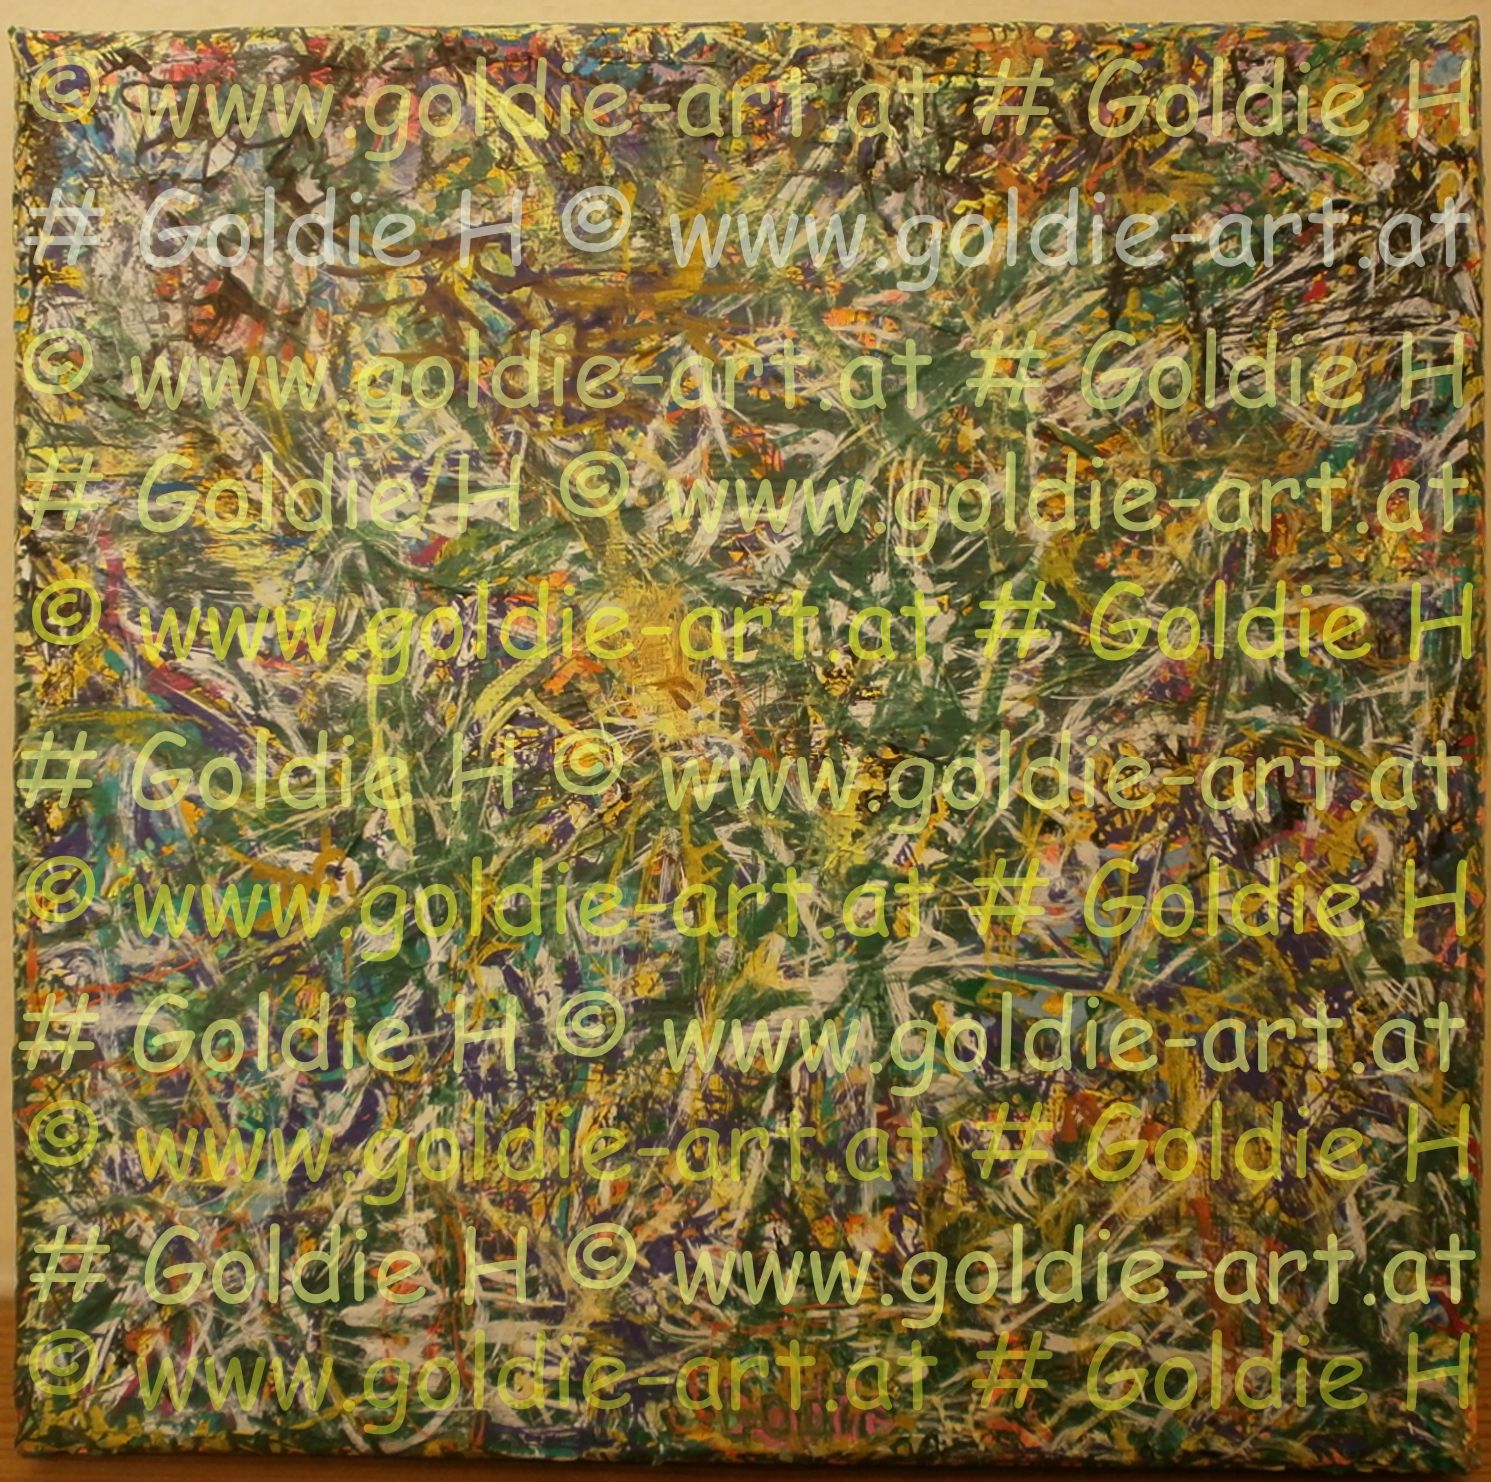 © www.goldie-art.at # Goldie H
# Goldie H © www.goldie-art.at
© www.goldie-art.at # Goldie H
# Goldie H © www.goldie-art.at
© www.goldie-art.at # Goldie H
# Goldie H © www.goldie-art.at
© www.goldie-art.at # Goldie H
# Goldie H © www.goldie-art.at
© www.goldie-art.at # Goldie H
# Goldie H © www.goldie-art.at
© www.goldie-art.at # Goldie H